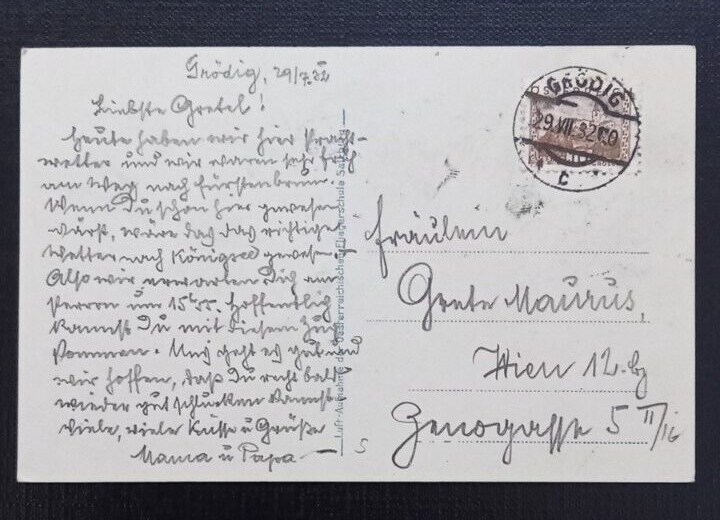 Grödig, 29/7.32
Liebste Gretel!
Heute haben wir hier Pracht-
wetter und wir waren sehr früh
am Weg nach Fürstenbrunn.
Wenn Du schon hier gewesen
wärst, wäre das das richtige
Wetter nach Königssee gewesen.
Also wir erwarten Dich am
Perron um 15 55. Hoffentlich
kannst Du mit diesem Zug
kommen. Uns geht es gut und
wir hoffen, daß Du recht bald
wieder gut schlucken kannst.
Viele, viele Küsse u Grüße
Mama u Papa
Luft-Aufnahme der Österreichischen Fliegerschule Salzburg
GRÖDIG
29.VII.32
c
Fräulein
Grete Maurus,
Wien 12.
Genogasse 5 II/16
S